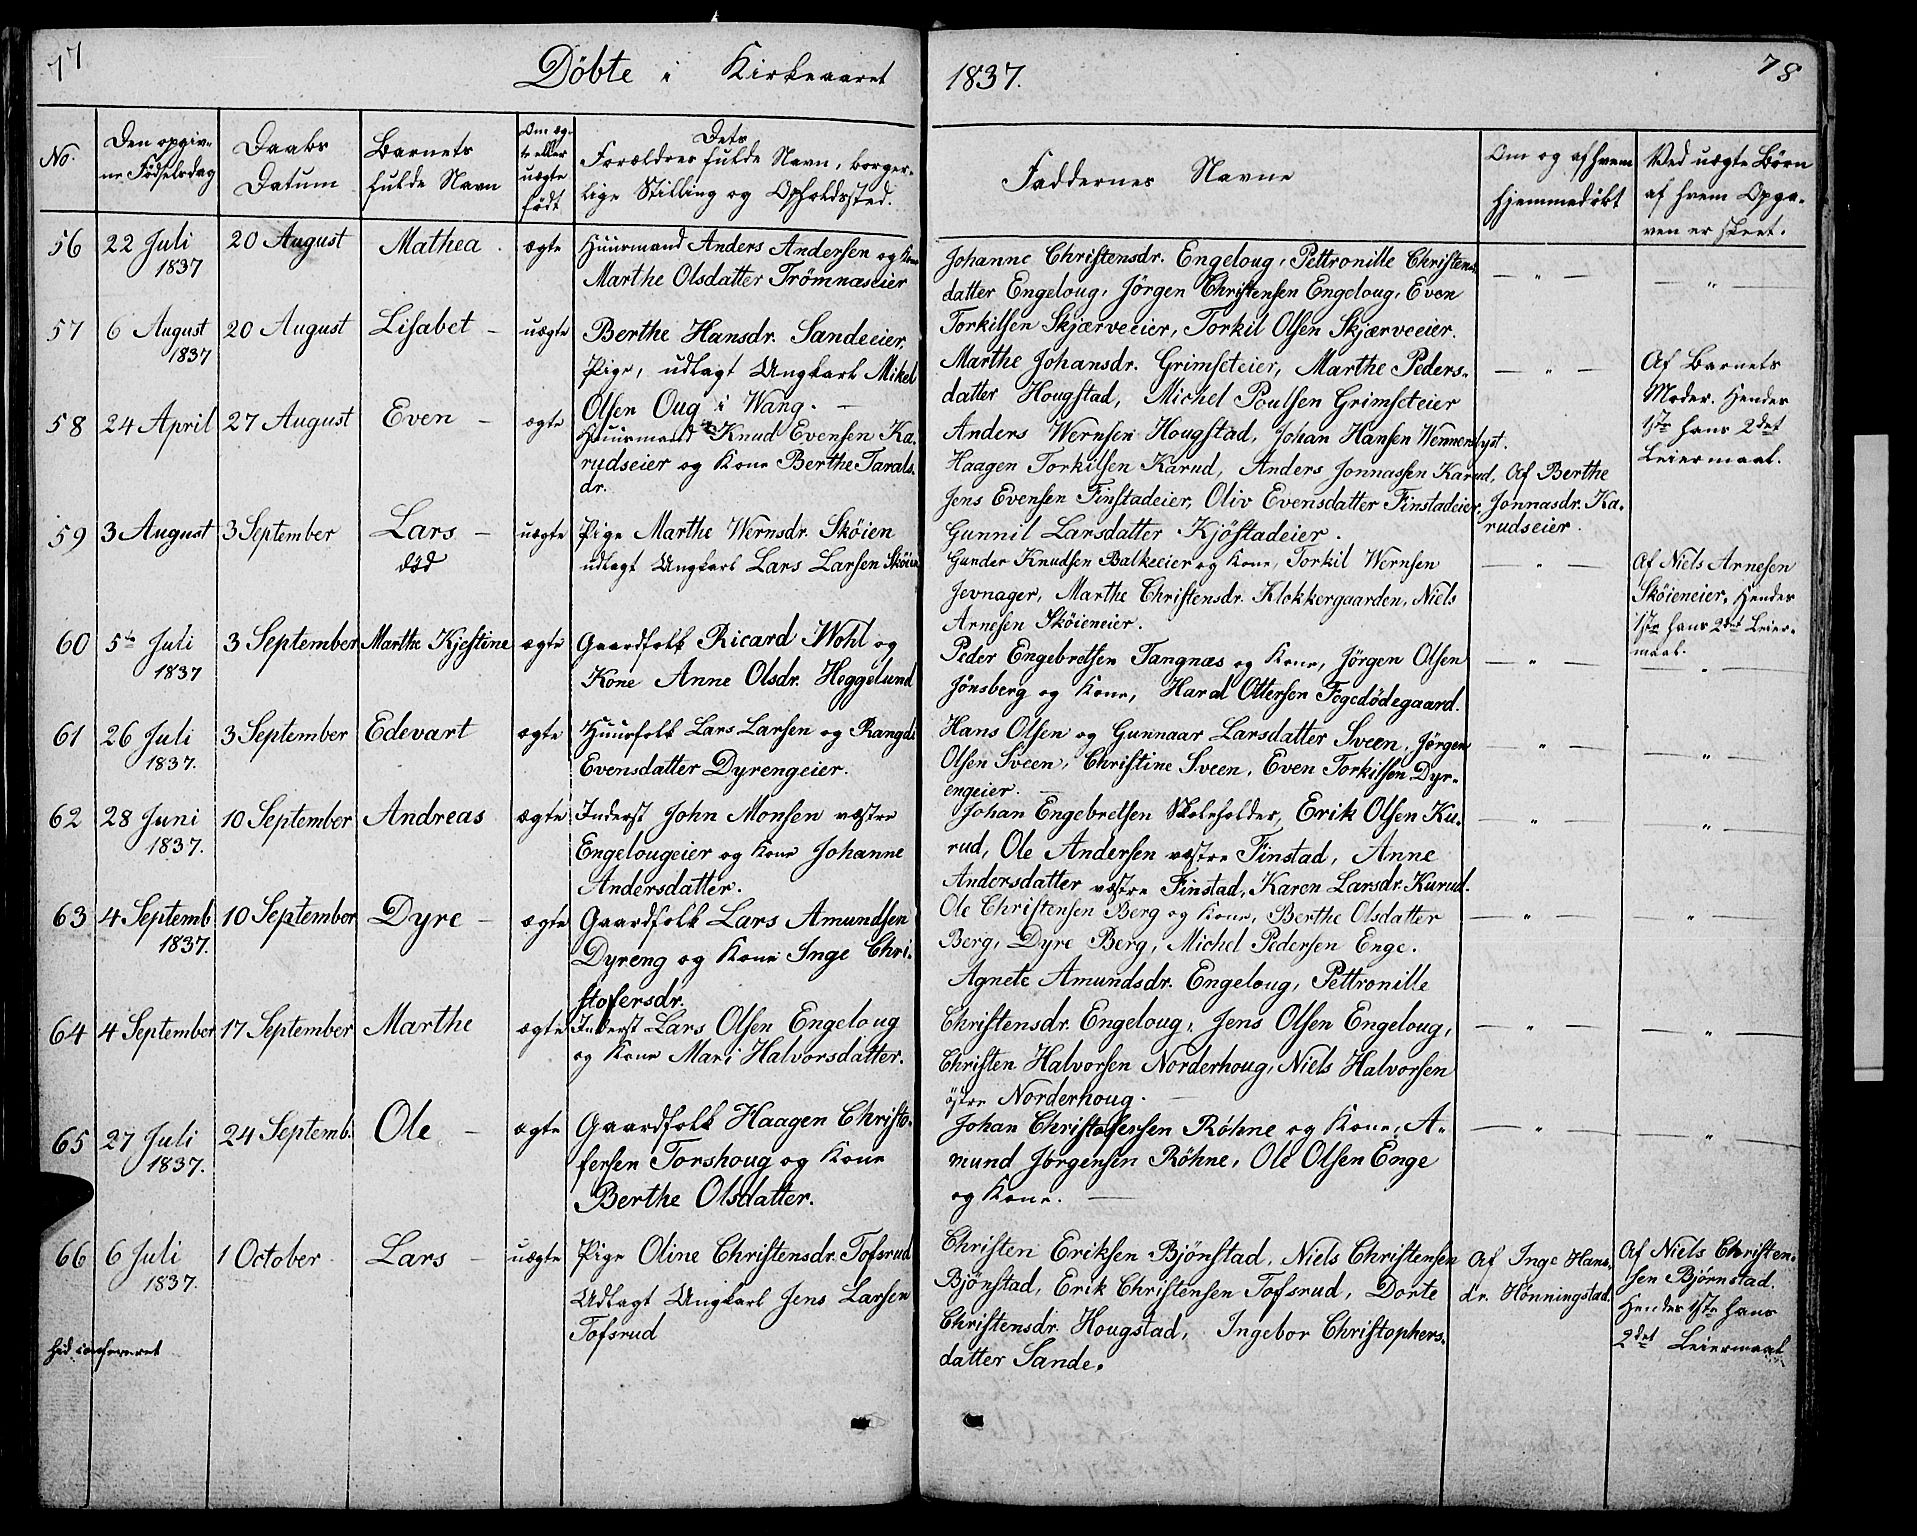 77
Döbte i Kirkeaaret
No.
Den opgiv-
ne Födselsdag
Daabs
Datum
Barnets
fulde Navn
Om æg-
te eller
uægte
födt
Dets
Forældres fulde Navn, borger-
lige Stilling og Opholdssted.
56
22 Juli
1837
20 August
Mathea
ægte
Huusmand Anders Andersen og Kone
Marthe Olsdatter Trömnæseier
57
6 August
1837
20 August
Lisabet -
uægte
Berthe Hansdr. Sandeeier,
Pige, udlagt Ungkarl Mikel
Olsen Oug i Wang. -
58
24 April
27 August
Even -
ægte
Huusmand Knud Evensen Ka-
rudseier og Kone Berthe Tarals-
dr.
59
3 August
3 September
Lars -
död
uægte
Pige Marthe Wernsdr. Sköien
udlagt Ungkarl Lars Larsen Sköien
60
5te Juli
1837
3 September
Marthe Kjestine
ægte
Gaardfolk Ricard Wohl og
Kone Anne Olsdr. Heggelund
61
26 Juli
1837.
3 September
Edevart
ægte
Huusfolk Lars Larsen og Rangdi
Evensdatter Dyrengeier.
62
28 Juni
1837.
10 September
Andreas
ægte
Inderst John Monsen vestre
Engelougeier og Kone Johanne
Andersdatter.
63
4 Septemb.
1837.
10 September
Dyre -
ægte
Gaardfolk Lars Amundsen
Dyreng og Kone Inge Chri-
stofersdr.
64
4 September
17 September
Marthe
ægte
Inderst Lars Olsen Engeloug
og Kone Mari Halvorsdatter.
65
27 Juli
1837.
24 Septemb.
Ole -
ægte
Gaardfolk Haagen Christo-
fersen Torshoug og Kone
Berthe Olsdatter.
66
6 Juli
1837.
1 October
Lars -
uægte
Pige Oline Christensdr. Tofsrud
Udlagt Ungkarl Jens Larsen
Tofsrud
hid confereret
1837.
78
Faddernes Navne
Om og af hvem
hjemmedöbt
Ved uægte Börn
af hvem Opga-
ven er skeet.
Johanne Christensdr. Engeloug, Pettronille Christens-
datter Engeloug, Jörgen Christensen Engeloug, Even
Torkilsen Skjærveeier, Torkil Olsen Skjærveeier.
— " —
— " —
Marthe Johansdr. Grimseteier, Marthe Peders-
datter Hougstad, Michel Poulsen Grimseteier
Anders Wernsen Hougstad, Johan Hansen Wennerslyst.
— " —
Af Barnets
Moder. Hendes
1ste hans 2det
Leiermaal.
Haagen Torkilsen Karud, Anders Jonnassen Karud,
Jens Evensen Finstadeier, Oliv Evensdatter Finstadeier,
Gunnil Larsdatter Kjöstadeier.
Af Berthe
Jonnasdr. Ka-
rudseier.
Gunder Knudsen Balkeeier og Kone, Torkil Wernsen
Jevnager, Marthe Christensdr. Klokkergaarden, Niels
Arnesen Sköieneier.
— " —
Af Niels Arnesen
Sköieneier, Hendes
1ste hans 2det Leier-
maal.
Peder Engebretsen Tangnæs og Kone, Jörgen Olsen
Jönsberg og Kone, Haral Ottersen Fogedödegaard.
— " —
— " —
Hans Olsen og Gunnaar Larsdatter Sveen, Jörgen
Olsen Sveen, Christine Sveen, Even Torkilsen Dyr-
engeier. -
— " —
— " —
Johan Engebretsen Skoleholder, Erik Olsen Ku-
rud, Ole Andersen vestre Finstad, Anne
Andersdatter vestre Finstad, Karen Larsdr. Kurud.
— " —
— " —
Ole Christensen Berg og Kone, Berthe Olsdatter
Berg, Dyre Berg, Michel Pedersen Enge.
— " —
— " —
Agnete Amundsdr. Engeloug, Pettronille
Christensdr. Engeloug, Jens Olsen Engeloug,
Christen Halvorsen Norderhoug, Niels Halvorsen
östre Norderhoug. -
— " —
— " —
Johan Christofersen Röhne og Kone, A-
mund Jörgensen Röhne, Ole Olsen Enge
og Kone. —
— " —
— " —
Christen Eriksen Bjönstad, Niels Christensen
Bjönstad, Erik Christensen Tofsrud, Dorte
Christensdr. Hougstad, Ingebor Christophers-
datter Sande.
Af Inge Hans-
dr. Hönningstad.
Af Niels Christen-
sen Björnstad.
Hendes 1ste hans
2det Leiermaal